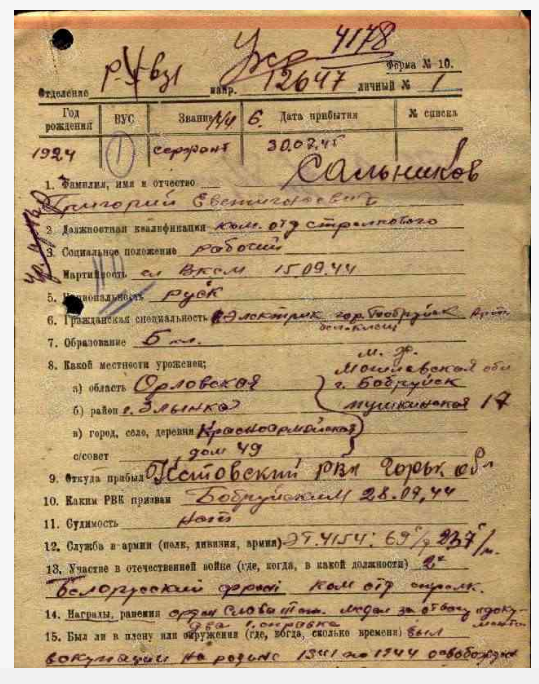 4178
Форма № 10.
Отделение напр. 12647 личный № 1
Год рождения ВУС Звание Дата прибытия № списка
1924 1 сержант 30.07.45
1. Фамилия, имя и отчество Сальников
Григорий
2. Должностная квалификация ком. отд стрелкового
3. Социальное положение рабочий
Партийность чл ВКСМ 15.09.44
5. Национальность руск
6. Гражданская специальность Электрик гор. Бобруйск
7. Образование 5 кл.
м. ж.
8. Какой местности уроженец: Могилевская обл
а) область Орловская г. Бобруйск
б) район г. Злынка пушкинская 17
в) город, село, деревня Красноармейская
с/совет дом 49
9. Откуда прибыл РВК Горьк обл
10. Каким РВК призван Бобруйским 28.09.44
11. Судимость нет
12. Служба в армии (полк, дивизия, армия)
13. Участие в отечественной войне (где, когда, в какой должности) 2й
Белорусский фронт ком отд стрелк.
14. Награды, ранения орден Слава медал за отвагу
два справка
15. Был ли в плену или окружения (где, когда, сколько времени) был
вокупации на родине 1941 по 1944